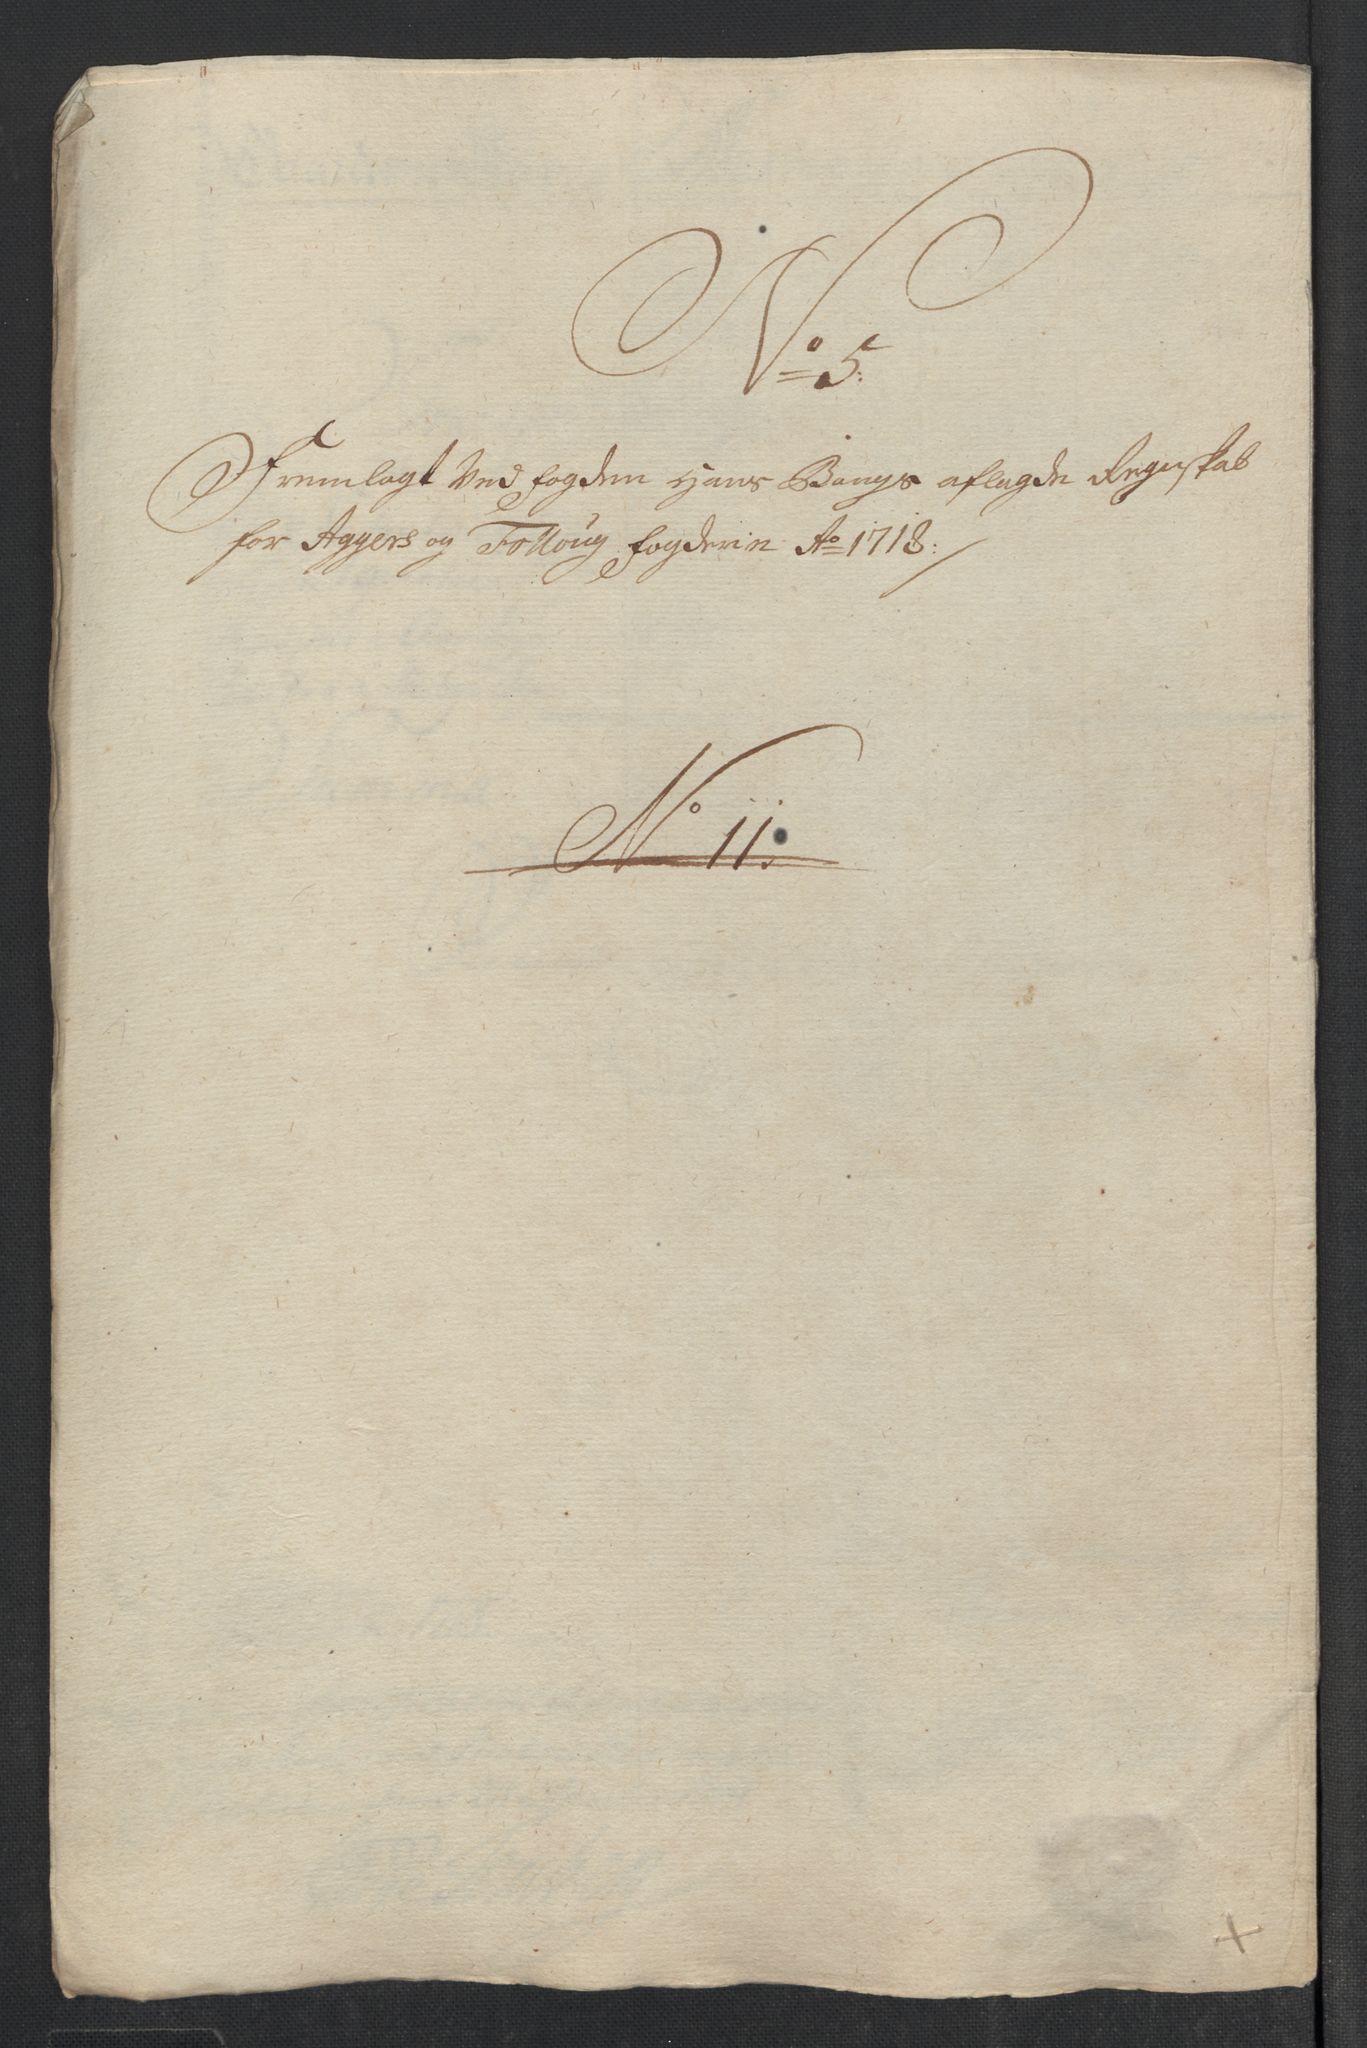 No 5:
Fremlagt Ved fogden Hans Bangs aflagde Regnskab
for Aggers og Folloug fogderie Ao 1718:/
No 11: